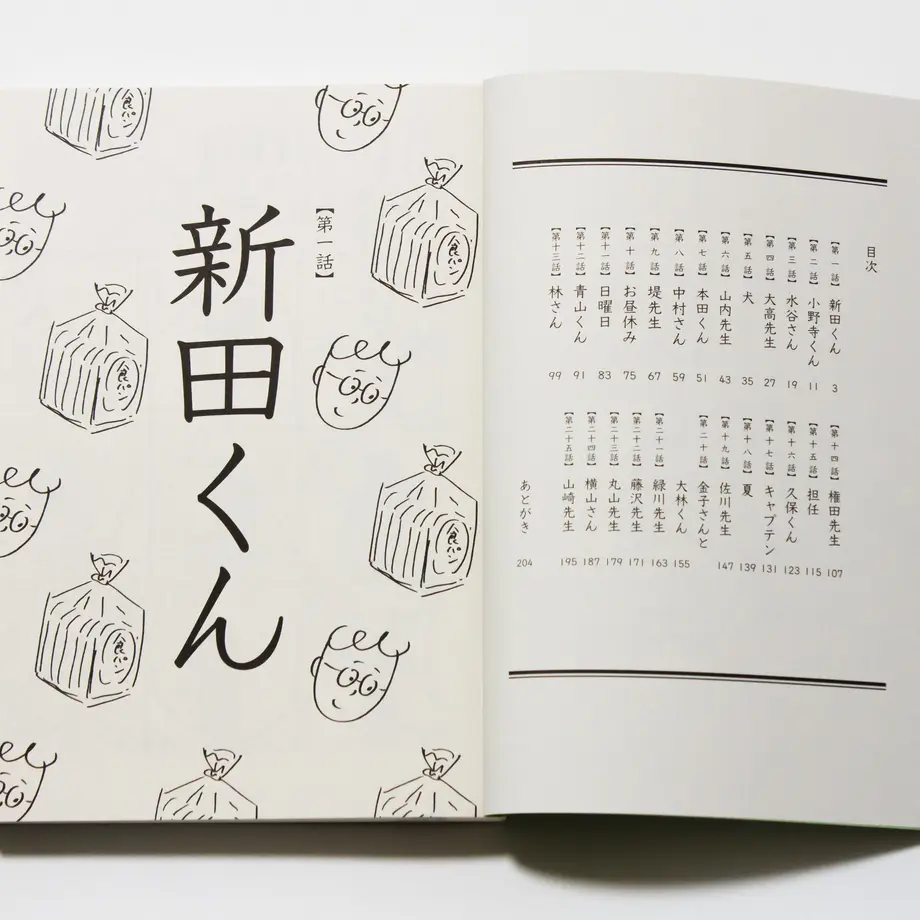 目次
【第一話】新田くん 3
【第二話】小野寺くん 11
【第三話】水谷さん 19
【第四話】大高先生 27
【第五話】犬 35
【第六話】山内先生 43
【第七話】本田くん 51
【第八話】中村さん 59
【第九話】堤先生 67
【第十話】お昼休み 75
【第十一話】日曜日 83
【第十二話】青山くん 91
【第十三話】林さん 99
【第十四話】権田先生 107
【第十五話】担任 115
【第十六話】久保くん 123
【第十七話】キャプテン 131
【第十八話】夏 139
【第十九話】佐川先生 147
【第二十話】金子さんと
大林くん 155
【第二十一話】緑川先生 163
【第二十二話】藤沢先生 171
【第二十三話】丸山先生 179
【第二十四話】横山さん 187
【第二十五話】山崎先生 195
あとがき 204
【第一話】
新田くん
食パン
食パン
食パン
食パン
食パン